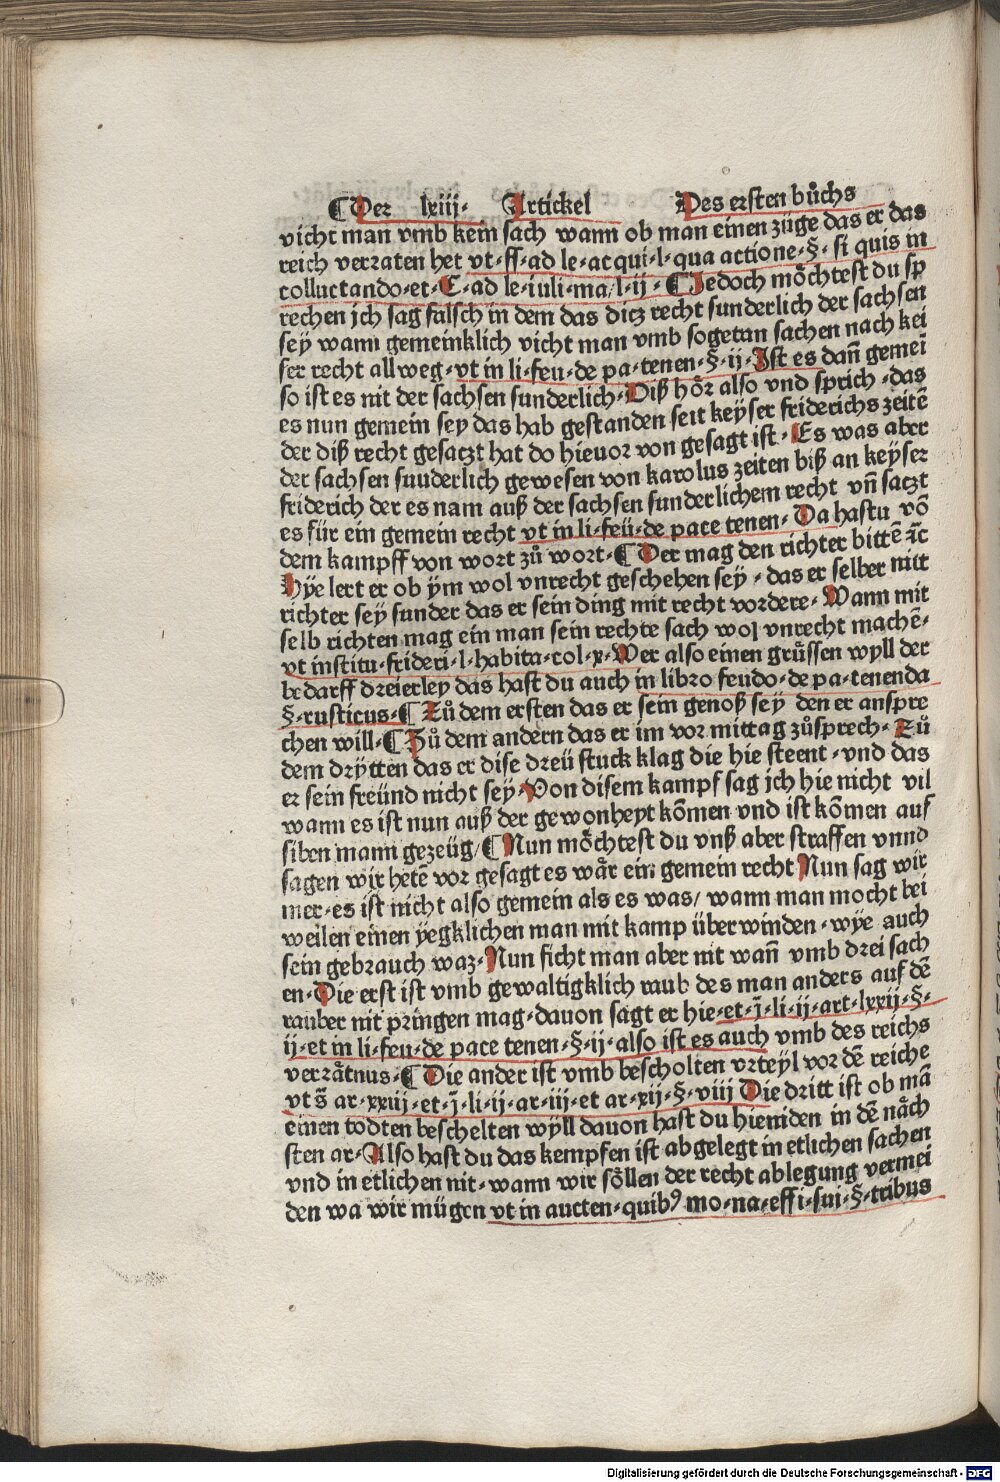 ¶Der lxiij. Artickel Des ersten bůchs
vicht man vmb kein sach wann ob man einen züge das er das
reich verraten het vt.ff.ad le.acqui.l.qua actione.§.si quis in
colluctando.et.C.ad le.iuli.ma.l.ij.¶Jedoch mo̊chtest du sp
rechen jch sag falsch in dem das dicz recht sunderlich der sachsen
sey wann gemeinklich vicht man vmb sogetan sachen nach kei
ser recht allweg.vt in li.feu.de pa.tenen.§.ij.Ist es dañ gemeī
so ist es nit der sachsen sunderlich.Diß ho̊r also vnd sprich.das
es nun gemein sey das hab gestanden seit keyser friderichs zeitē
der diß recht gesaczt hat do hieuor von gesagt ist.Es was aber
der sachsen suuderlich gewesen von karolus zeiten biß an keyser
friderich der es nam auß der sachsen sunderlichem recht vñ saczt
es für ein gemein recht vt in li.feü.de pace tenen.Da hastu vō
dem kampff von wort zů wort.¶Der mag den richter bittē ꝛc̄
Hye lert er ob ym wol vnrecht geschehen sey.das er selber nitt
richter sey sunder das er sein ding mit recht vordere.Wann mit
selb richten mag ein man sein rechte sach wol vnrecht machē.
vt institu.frideri.l.habita.col.x.Wer also einen grüssen wyll der
bedarff dreierley das hast du auch in libro feudo.de pa.tenenda
§.rusticus.¶Zů dem ersten das er sein genoß sey den er anspre
chen will.¶Zů dem andern das er im vor mittag zůsprech.Zů
dem drytten das er dise dreü stuck klag die hie steent.vnd das
er sein freünd nicht sey.Von disem kampf sag jch hie nicht vil
wann es ist nun auß der gewonheyt kōmen vnd ist kōmen auf
siben mann gezeüg/¶Nun mo̊chtest du vnß aber straffen vnnd
sagen wir hetē vor gesagt es wa̎r ein gemein recht Nun sag wir
mer.es ist nicht also gemein als es was/ wann man mocht bei
weilen einen yegklichen man mit kamp überwinden.wye auch
sein gebrauch waz.Nun ficht man aber nit wañ vmb drei sach
en.Die erst ist vmb gewaltigklich raub des man anders auf dē
rauber nit pringen mag.dauon sagt er hie.et.j̄.li.ij.art.lxxij.§.
ij.et in li.feu.de pace tenen.§.ij.also ist es auch vmb des reichs
verra̎tnus.¶Die ander ist vmb bescholten vrteyl vor dē reiche
vt s̄ ar.xxiij.et.j̄.li.ij.ar.iij.et ar.xij.§.viij Die dritt ist ob mā
einen todten beschelten wyll dauon hast du hieniden in dē na̎ch
sten ar.Also hast du das kempfen ist abgelegt in etlichen sachen
vnd in etlichen nit.wann wir so̎llen der recht ablegung vermei
den wa wir mügen vt in aucten.quibꝰ mo.na.effi.sui.§.tribus
Digitalisierung gefördert durch die Deutsche Forschungsgemeinschaft - DFG